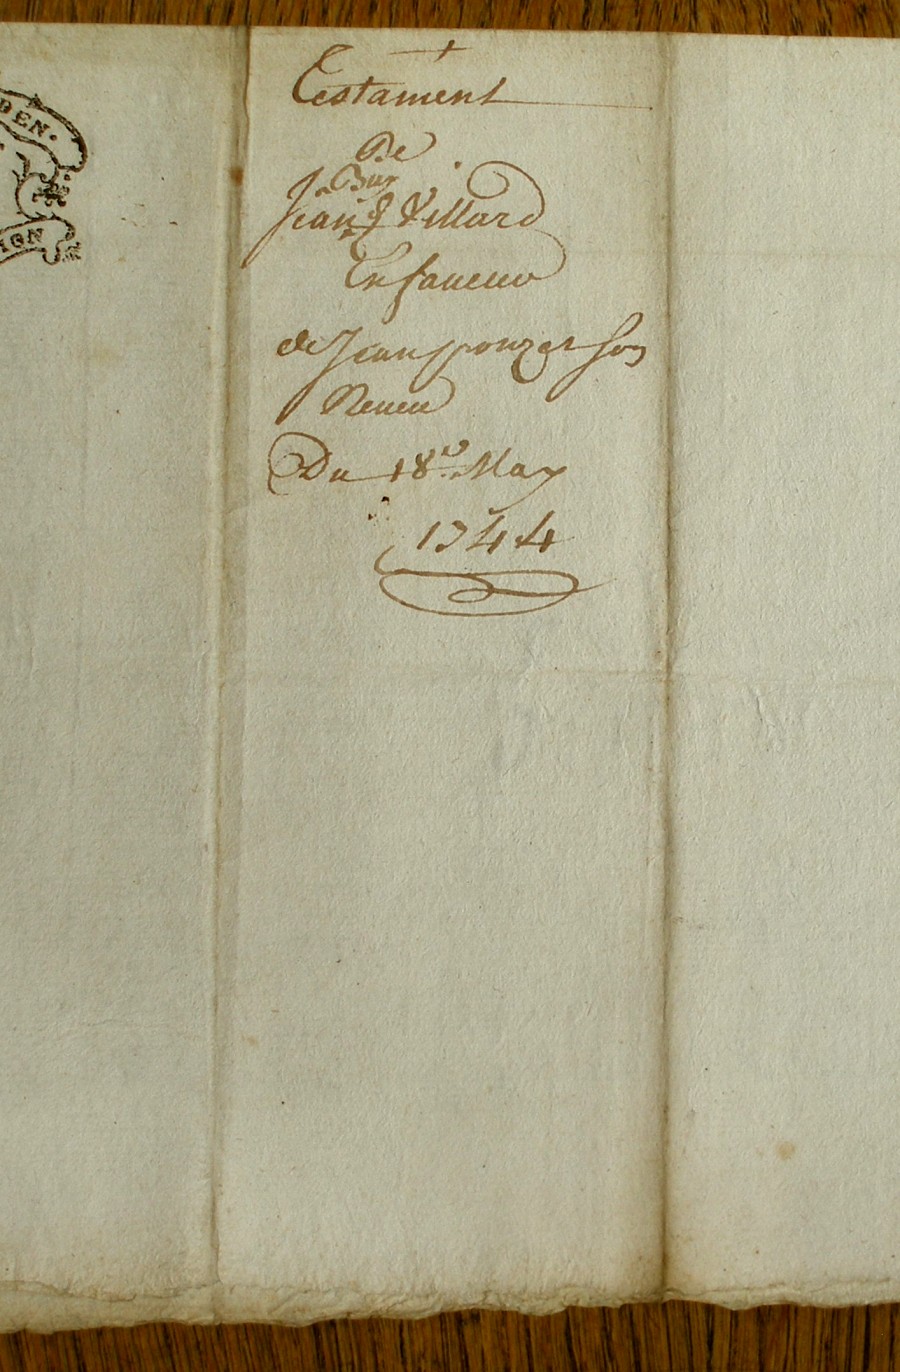 DEN.
ION
Testament
De
Jean Villard
En faueur
de Jean ponzet son
Neueu
Du 18e May
1744